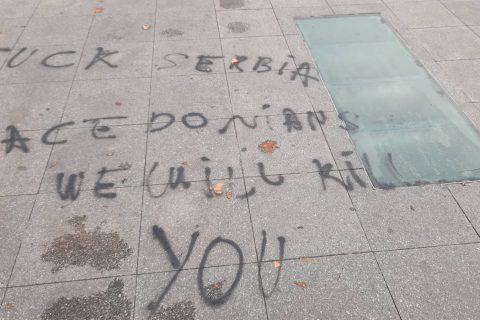 FUCK SERBIA
MACEDONIANS
WE WILL KILL
YOU